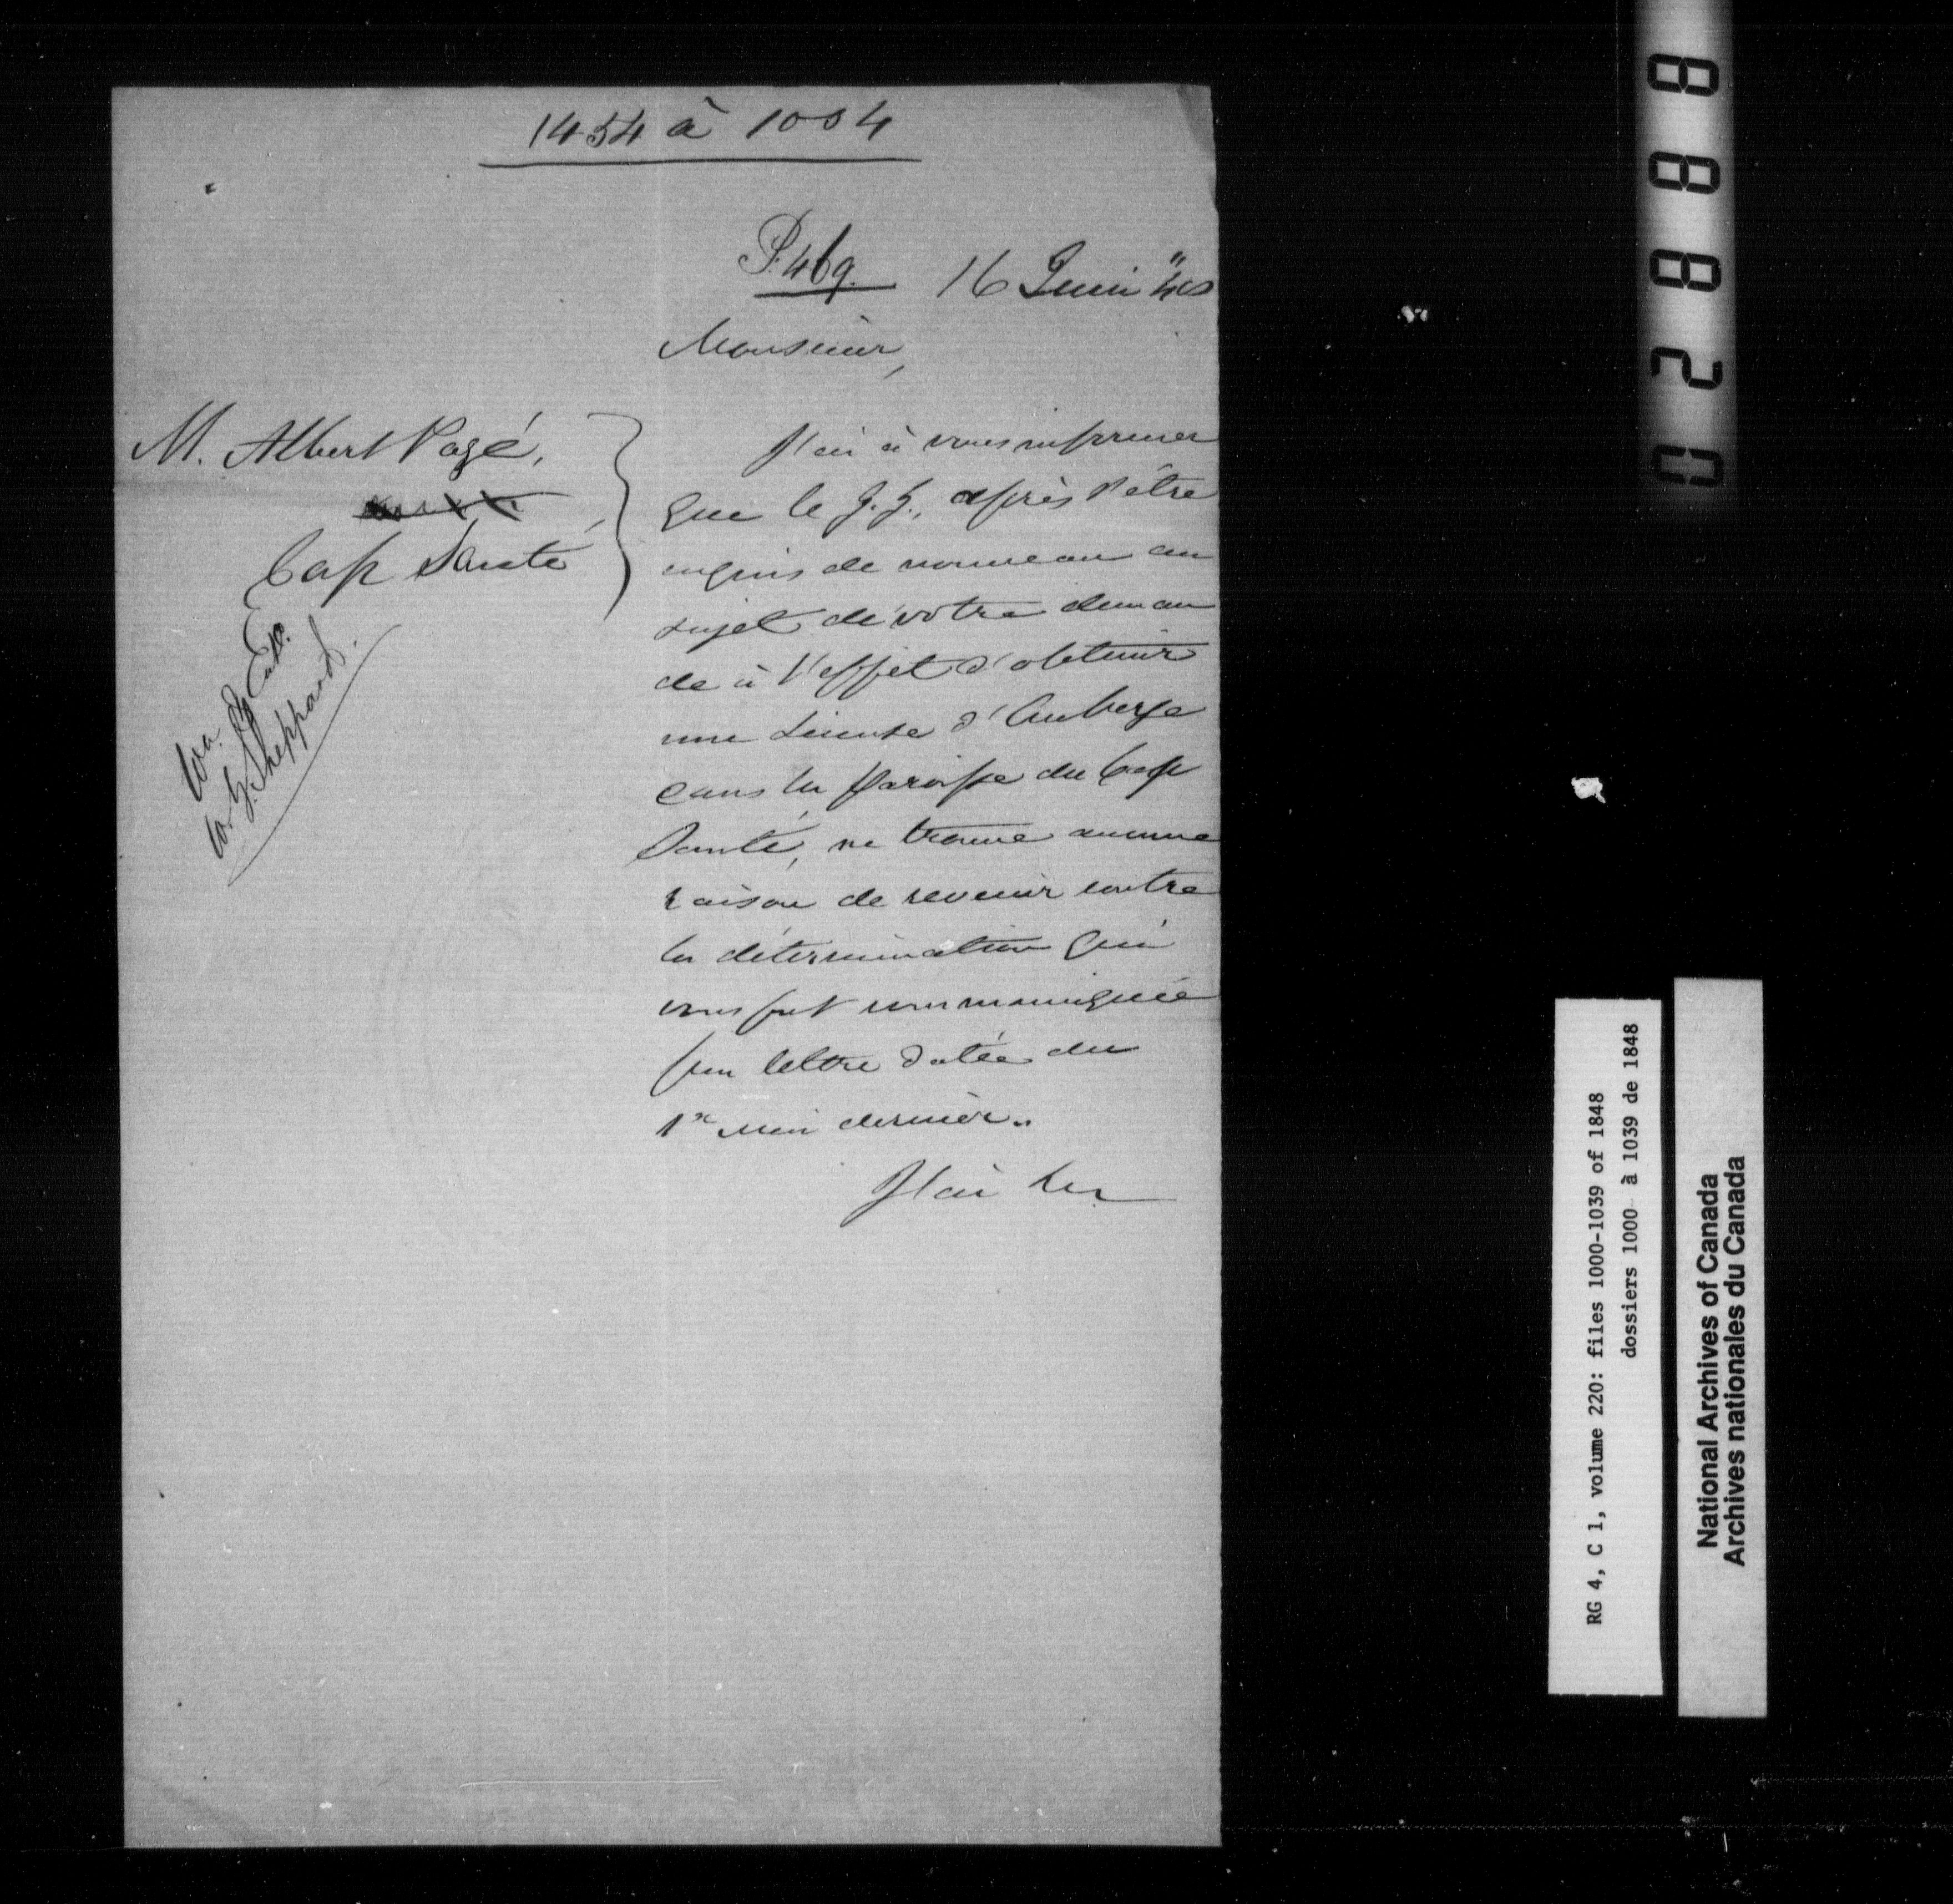 1454 à 1004
P. 469. 16 Juin "48
Monsieur,
M. Albert Pagé,
Cap Santé
J'ai à vous informer
que le G. G., après s'être
enquis de nouveau au
sujet de votre deman
de à l'effet d'obtenir
une License d'Auberge
dans la Paroisse du Cap
Santé, ne trouve aucune
raison de revenir contre
la détermination qui
vous fut communiquée
par lettre datée du
1er Mai dernier.
J'ai &c
W. Sheppard.
88820
RG 4, C 1, volume 220: files 1000-1039 of 1848
dossiers 1000 à 1039 de 1848
National Archives of Canada
Archives nationales du Canada